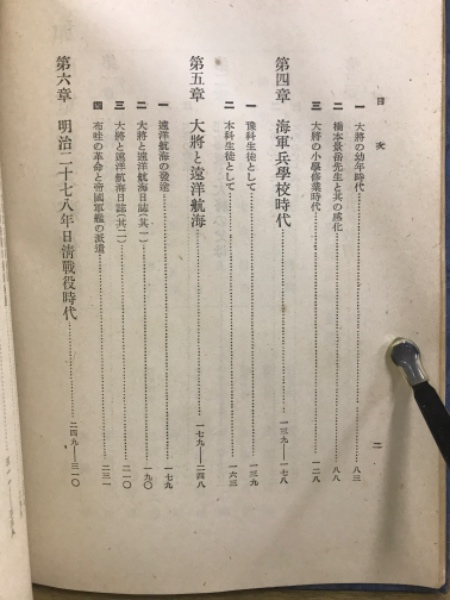 目次
二
一 大將の幼年時代……八三
二 橋本景岳先生と其の感化……八八
三 大將の小學修業時代……一二八
第四章 海軍兵學校時代……一三九—一七八
一 豫科生徒として……一三九
二 本科生徒として……一六三
第五章 大將と遠洋航海……一七九—二四八
一 遠洋航海の發達……一七九
二 大將と遠洋航海日誌(其一)……一九〇
三 大將と遠洋航海日誌(其二)……二一〇
四 布哇の革命と帝國軍艦の派遣……二三一
第六章 明治二十七八年日清戰役時代……二四九—三一〇